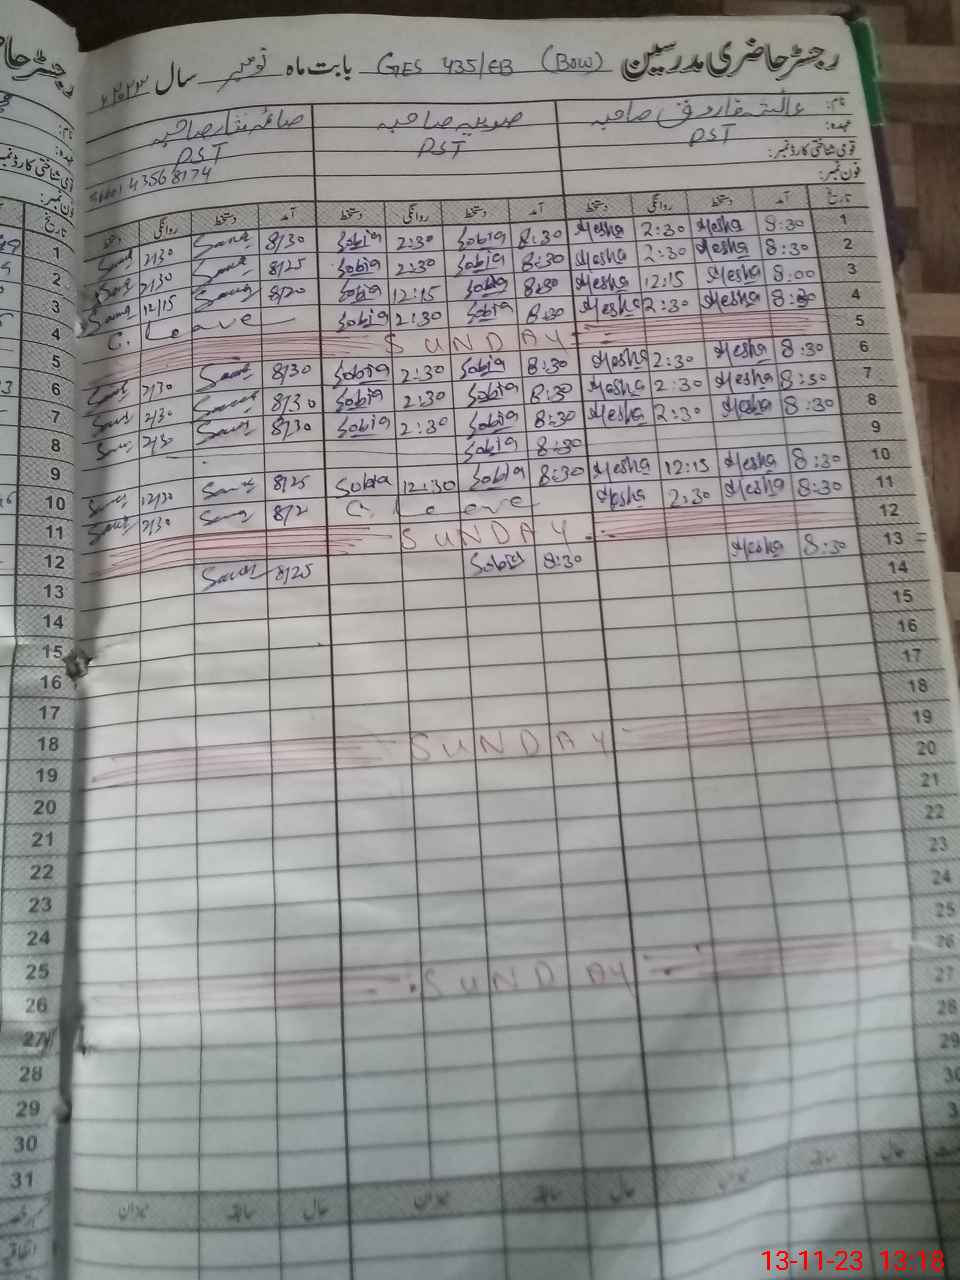 رجسٹر حاضری مدرسین GES 435/EB (BOW) بابت ماہ نومبر سال ۲۰۲۳ء
نام: عائشہ فاروق صاحبہ صوبیہ صاحبہ صائمہ نثار صاحبہ
عہدہ: PST PST PST
قومی شناختی کارڈ نمبر:
فون نمبر:
تاریخ آمد دستخط روانگی دستخط آمد دستخط روانگی دستخط آمد دستخط روانگی دستخط
1 8:30 Aesha 2:30 Aesha 8:30 Sobia 2:30 Sobia 8/30 2/30 1
2 8:30 Aesha 2:30 Aesha 8:30 Sobia 2:30 Sobia 8/25 2/30 2
3 8:00 Aesha 12:15 Aesha 8:30 Sobia 12:15 Sobia 8/20 12/15 3
4 8:30 Aesha 2:30 Aesha 8:30 Sobia 2:30 Sobia C. Leave 4
5 SUNDAY 5
6 8:30 Aesha 2:30 Aesha 8:30 Sobia 2:30 Sobia 8/30 2/30 6
7 8:30 Aesha 2:30 Aesha 8:30 Sobia 2:30 Sobia 8/30 2/30 7
8 8:30 Aesha 2:30 Aesha 8:30 Sobia 2:30 Sobia 8/30 2/30 8
9 8:30 Sobia 9
10 8:30 Aesha 12:15 Aesha 8:30 Sobia 12:30 Sobia 8/25 12/30 10
11 8:30 Aesha 2:30 Aesha C. Leave 2/30 11
12 SUNDAY 12
13 8:30 Aesha 8:30 Sobia 8/25 13
14 14
15 15
16 16
17 17
18 18
19 SUNDAY 19
20 20
21 21
22 22
23 23
24 24
25 25
26 SUNDAY 26
27 27
28 28
29 29
30 30
31
حال سابقہ میزان حال سابقہ میزان حال سابقہ میزان
13-11-23 13:18